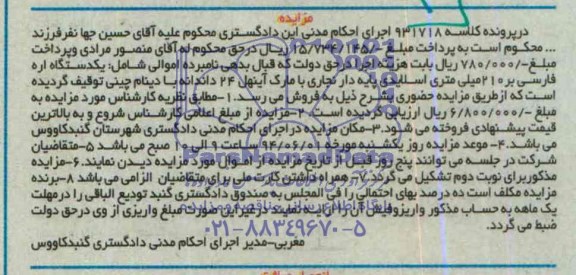 مزایده
درپرونده کلاسه ۹۳۱۷۱۸ اجرای احکام مدنی این دادگستری محکوم علیه آقای حسین جها نفرفرزند
... محکوم است به پرداخت مبلغ ۲۵/۷۳۴/۱۴۵/- ریال درحق محکوم له آقای منصور مرادی وپرداخت
مبلغ-/۷۸۰/۰۰۰ ریال بابت هزینه اجرا درحق دولت که قبال بدهی نامبرده اموالی شامل: یکدستگاه اره
فارسی بر ۲۱۰میلی متری اسلایدی پایه دار نجاری با مارک آینهل ۲۴ دندانه با دینام چینی توقیف گردیده
است که ازطریق مزایده حضوری بشرح ذیل به فروش می رسد. ۱-مطابق نظریه کارشناس مورد مزایده به
مبلغ -/۶/۸۰۰/۰۰۰ ریال ارزیابی گردیده است ۲-مزایده از مبلغ اعلامی کارشناس شروع و به بالاترین
قیمت پیشنهادی فروخته می شود.۳-مکان مزایده دراجرای احکام مدنی دادگستری شهرستان گنبدکاووس
می باشد.۴- موعد مزایده روز یکشنبه مورخه ۹۴/۰۶/۰۱ ساعت ۹ الی ۱۰ صبح می باشد ۵-متقاضیان
شرکت در جلسه می توانند پنج روز قبل از تاریخ مزایده از اموال مورد مزایده دیدن نمایند.۶-مزایده
مذکوربرای نوبت دوم تشکیل می گردد.۷- همراه داشتن کارت ملی برای متقاضیان الزامی می باشد ۸-برنده
مزایده مکلف است ده درصد بهای احتمالی را فی المجلس به صندوق دادگستری گنبد تودیع الباقی را درمهلت
یک ماهه به حساب مذکور واریزوفیش آن را ارایه نمایند درغیراین صورت مبلغ واریزی از وی درحق دولت
ضبط می گردد.
۰۲۱-۸۸۳۴۹۶۷۰-۵
مغربی-مدیر اجرای احکام مدنی دادگستری گنبدکاووس